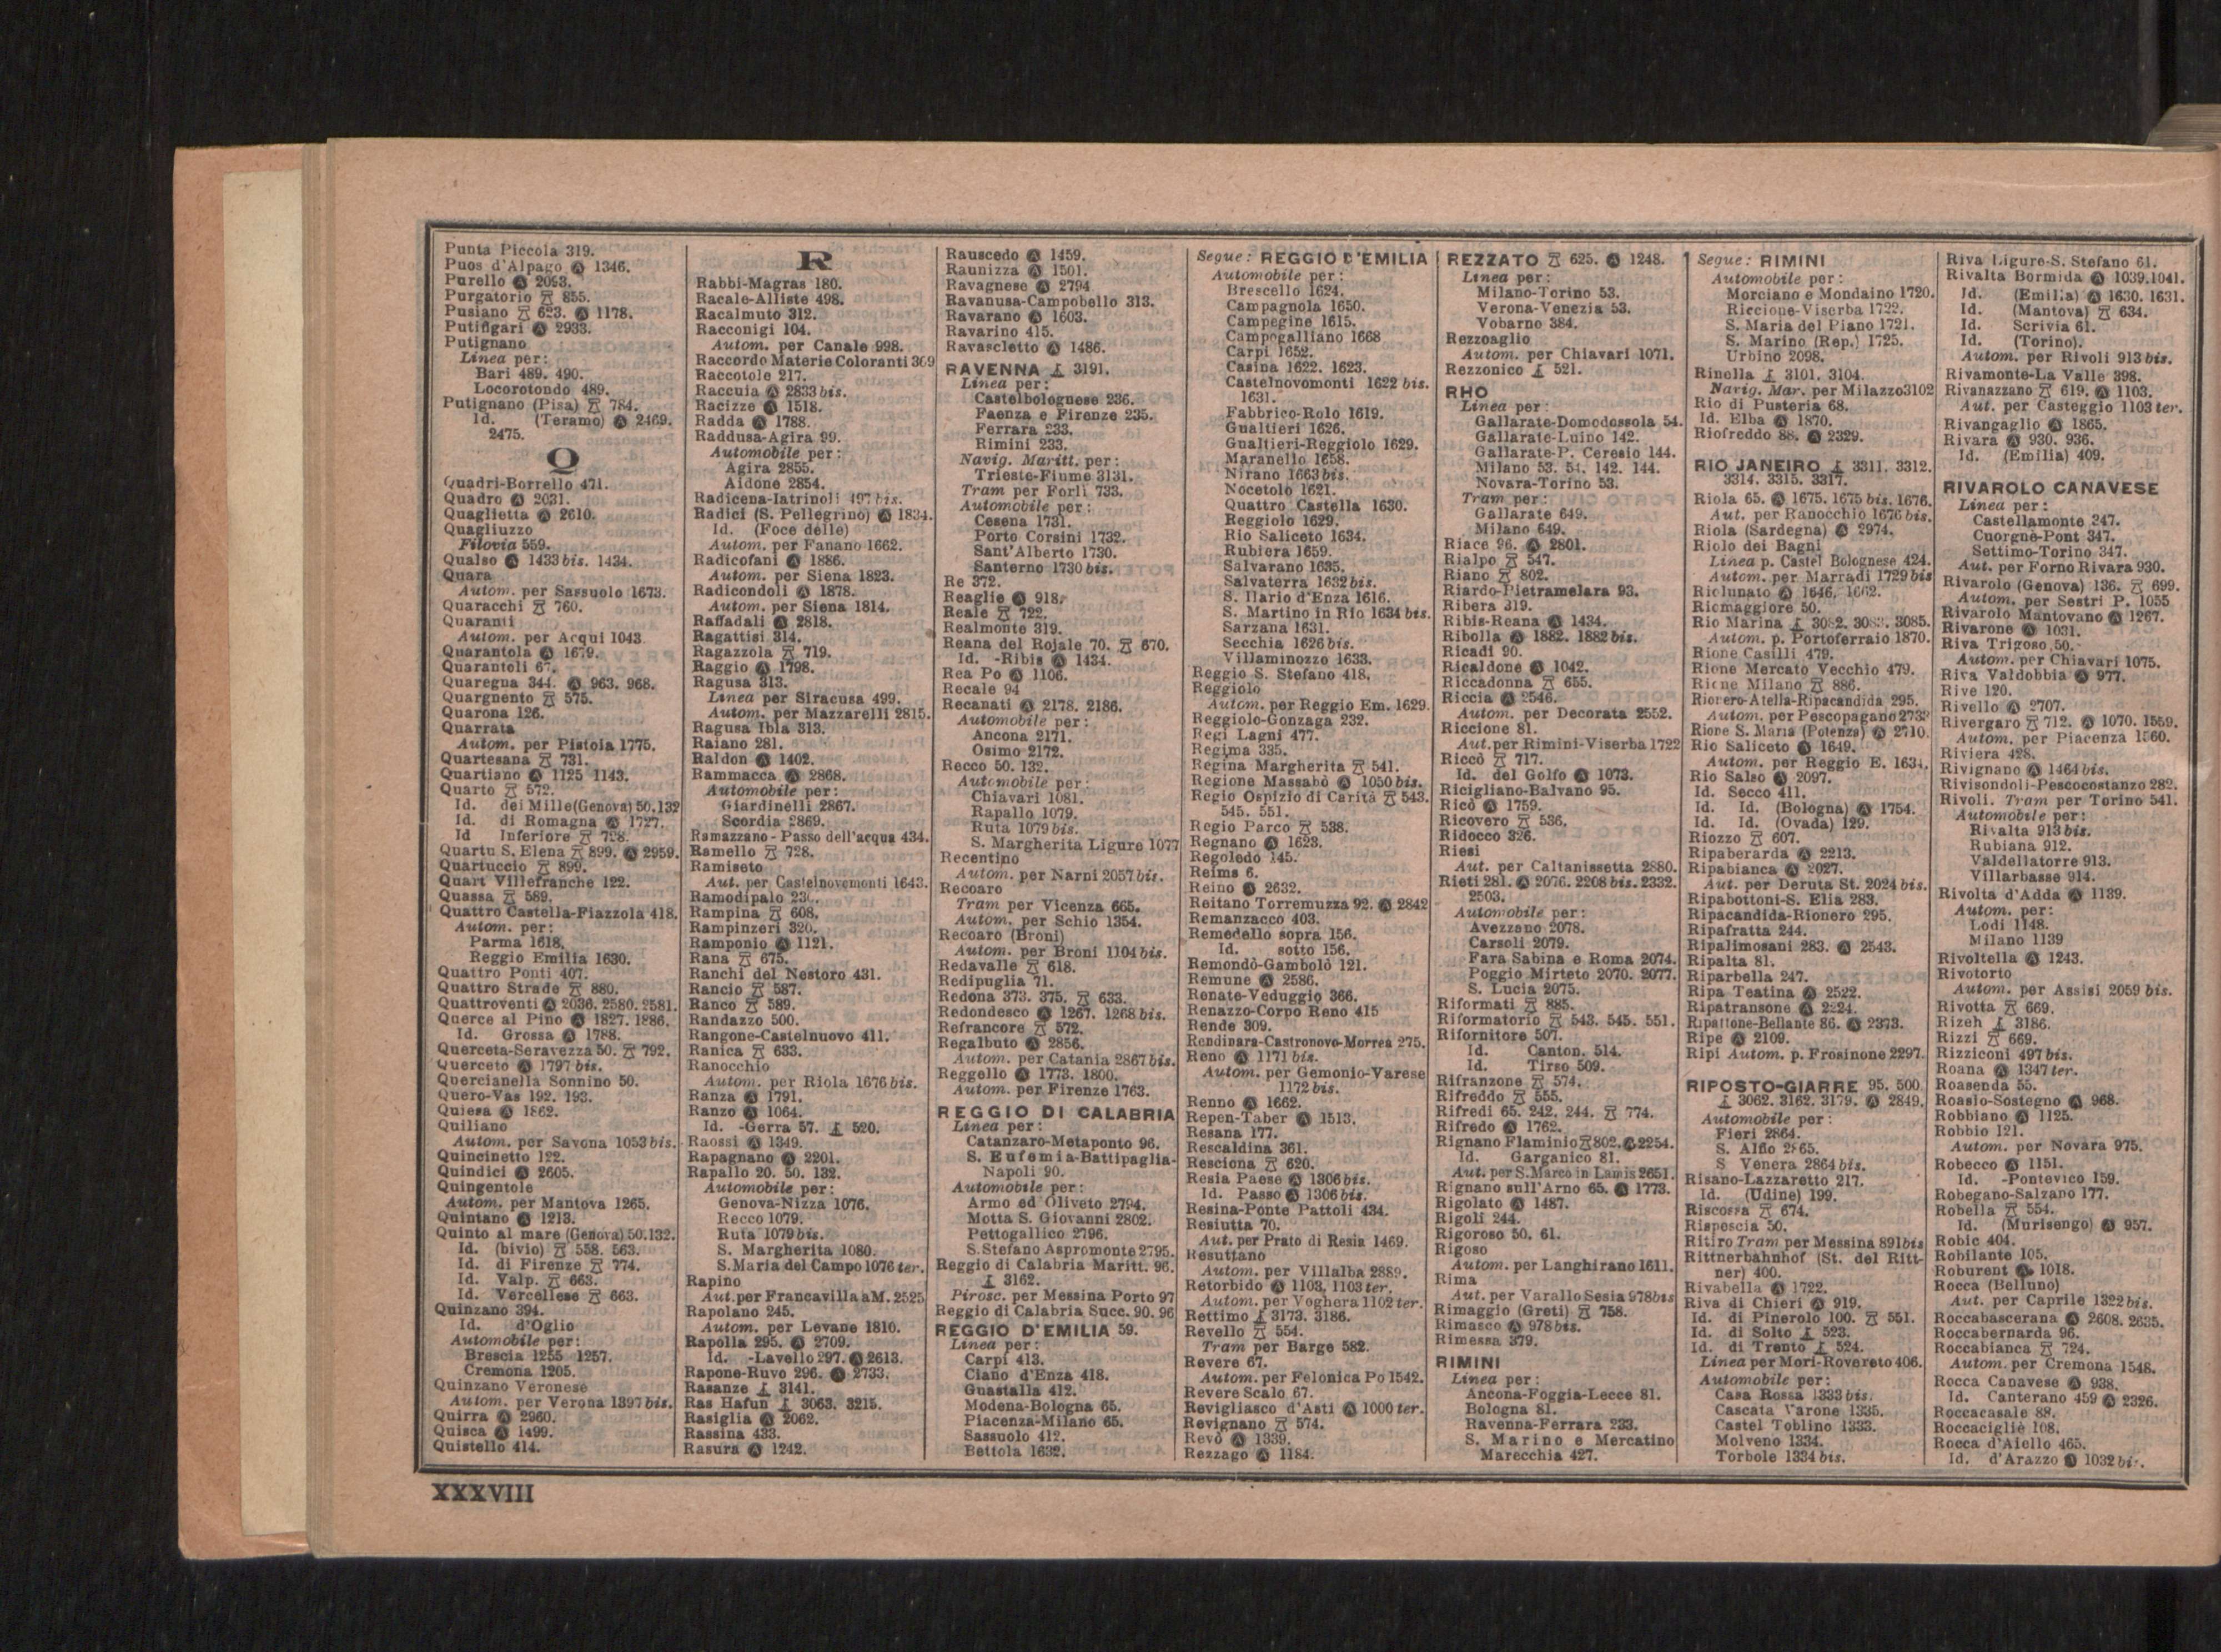 Punta Piccola 319.
Puos d'Alpago Ⓐ 1346.
Purello Ⓐ 2093.
Purgatorio 855.
Pusiano 623. Ⓐ 1178.
Putifigari Ⓐ 2933.
Putignano
Linea per:
Bari 489. 490.
Locorotondo 489.
Putignano (Pisa) 784.
Id. (Teramo) Ⓐ 2469.
2475.
Q
Quadri-Borrello 471.
Quadro Ⓐ 2031.
Quaglietta Ⓐ 2610.
Quagliuzzo
Filovia 559.
Qualso Ⓐ 1433 bis. 1434.
Quara
Autom. per Sassuolo 1673.
Quaracchi 760.
Quaranti
Autom. per Acqui 1043
Quarantola Ⓐ 1679.
Quarantoli 67.
Quaregna 344. Ⓐ 963. 968.
Quargnento 575.
Quarona 126.
Quarrata
Autom. per Pistoia 1775.
Quartesana 731.
Quartiano Ⓐ 1125 1143.
Quarto 572.
Id. dei Mille (Genova) 50.132
Id. di Romagna Ⓐ 1727.
Id Inferiore 728.
Quartu S. Elena 899. Ⓐ 2959.
Quartuccio 899.
Quart Villefranche 122.
Quassa 589.
Quattro Castella-Piazzola 418.
Autom. per:
Parma 1618.
Reggio Emilia 1630.
Quattro Ponti 407.
Quattro Strade 880.
Quattroventi Ⓐ 2036. 2580. 2581.
Querce al Pino Ⓐ 1827. 1886.
Id. Grossa Ⓐ 1788.
Querceta-Seravezza 50. 792.
Querceto Ⓐ 1797 bis.
Quercianella Sonnino 50.
Quero-Vas 192. 193.
Quiesa Ⓐ 1862.
Quiliano
Autom. per Savona 1053 bis.
Quincinetto 122.
Quindici Ⓐ 2605.
Quingentole
Autom. per Mantova 1265.
Quintano Ⓐ 1213.
Quinto al mare (Genova) 50.132.
Id. (bivio) 558. 563.
Id. di Firenze 774.
Id. Valp. 663.
Id. Vercellese 663.
Quinzano 394.
Id. d'Oglio
Automobile per:
Brescia 1255 1257.
Cremona 1205.
Quinzano Veronese
Autom. per Verona 1397 bis.
Quirra Ⓐ 2960.
Quisca Ⓐ 1499.
Quistello 414.
R
Rabbi-Magras 180.
Racale-Alliste 498.
Racalmuto 312.
Racconigi 104.
Autom. per Canale 998.
Raccordo Materie Coloranti 369
Raccotole 217.
Raccuia Ⓐ 2833 bis.
Racizze Ⓐ 1518.
Radda Ⓐ 1788.
Raddusa-Agira 99.
Automobile per:
Agira 2855.
Aidone 2854.
Radicena-Iatrinoli 497 bis.
Radici (S. Pellegrino) Ⓐ 1834.
Id. (Foce delle)
Autom. per Fanano 1662.
Radicofani Ⓐ 1886.
Autom. per Siena 1823.
Radicondoli Ⓐ 1878.
Autom. per Siena 1814.
Raffadali Ⓐ 2818.
Ragattisi 314.
Ragazzola 719.
Raggio Ⓐ 1798.
Ragusa 313.
Linea per Siracusa 499.
Autom. per Mazzarelli 2815.
Ragusa Ibla 313.
Raiano 281.
Raldon Ⓐ 1402.
Rammacca Ⓐ 2868.
Automobile per:
Giardinelli 2867.
Scordia 2869.
Ramazzano - Passo dell'acqua 434.
Ramello 728.
Ramiseto
Aut. per Castelnovomonti 1643.
Ramodipalo
Rampina 608.
Rampinzeri 320.
Ramponio Ⓐ 1121.
Rana 675.
Ranchi del Nestoro 431.
Rancio 587.
Ranco 589.
Randazzo 500.
Rangone-Castelnuovo 411.
Ranica 633.
Ranocchio
Autom. per Riola 1676 bis.
Ranza Ⓐ 1791.
Ranzo Ⓐ 1064.
Id. -Gerra 57. 520.
Raossi Ⓐ 1349.
Rapagnano Ⓐ 2201.
Rapallo 20. 50. 132.
Automobile per:
Genova-Nizza 1076.
Recco 1079.
Ruta 1079 bis.
S. Margherita 1080.
S. Maria del Campo 1076 ter.
Rapino
Aut. per Francavilla a M. 2525
Rapolano 245.
Autom. per Levane 1810.
Rapolla 295. Ⓐ 2709.
Id. -Lavello 297. Ⓐ 2613.
Rapone-Ruvo 296. Ⓐ 2733.
Rasanze 3141.
Ras Hafun 3063. 3215.
Rasiglia Ⓐ 2062.
Rassina 433.
Rasura Ⓐ 1242.
Rauscedo Ⓐ 1459.
Raunizza Ⓐ 1501.
Ravagnese Ⓐ 2794
Ravanusa-Campobello 313.
Ravarano Ⓐ 1603.
Ravarino 415.
Ravascletto Ⓐ 1486.
RAVENNA 3191.
Linea per:
Castelbolognese 236.
Faenza e Firenze 235.
Ferrara 233.
Rimini 233.
Navig. Maritt. per:
Trieste-Fiume 3131.
Tram per Forlì 733.
Automobile per:
Cesena 1731.
Porto Corsini 1732.
Sant'Alberto 1730.
Santerno 1730 bis.
Re 372.
Reaglie Ⓐ 918.
Reale 722.
Realmonte 319.
Reana del Rojale 70. 670.
Id. -Ribis Ⓐ 1434.
Rea Po Ⓐ 1106.
Recale 94
Recanati Ⓐ 2178. 2186.
Automobile per:
Ancona 2171.
Osimo 2172.
Recco 50. 132.
Automobile per:
Chiavari 1081.
Rapallo 1079.
Ruta 1079 bis.
S. Margherita Ligure 1077
Recentino
Autom. per Narni 2057 bis.
Recoaro
Tram per Vicenza 665.
Autom. per Schio 1354.
Recoaro (Broni)
Autom. per Broni 1104 bis.
Redavalle 618.
Redipuglia 71.
Redona 373. 375. 633.
Redondesco Ⓐ 1267. 1268 bis.
Refrancore 572.
Regalbuto Ⓐ 2856.
Autom. per Catania 2867 bis.
Reggello Ⓐ 1773. 1800.
Autom. per Firenze 1763.
REGGIO DI CALABRIA
Linea per:
Catanzaro-Metaponto 96.
S. Eufemia-Battipaglia-
Napoli 90.
Automobile per:
Armo ed Oliveto 2794.
Motta S. Giovanni 2802.
Pettogallico 2796.
S. Stefano Aspromonte 2795.
Reggio di Calabria Maritt. 96.
3162.
Pirosc. per Messina Porto 97
Reggio di Calabria Succ. 90. 96
REGGIO D'EMILIA 59.
Linea per:
Carpi 413.
Ciano d'Enza 418.
Guastalla 412.
Modena-Bologna 65.
Piacenza-Milano 65.
Sassuolo 412.
Bettola 1632.
Segue: REGGIO D'EMILIA
Automobile per:
Brescello 1624.
Campagnola 1650.
Campegine 1615.
Campogalliano 1668
Carpi 1652.
Casina 1622. 1623.
Castelnovomonti 1622 bis.
1631.
Fabbrico-Rolo 1619.
Gualtieri 1626.
Gualtieri-Reggiolo 1629.
Maranello 1658.
Nirano 1663 bis.
Nocetolo 1621.
Quattro Castella 1630.
Reggiolo 1629.
Rio Saliceto 1634.
Rubiera 1659.
Salvarano 1635.
Salvaterra 1632 bis.
S. Ilario d'Enza 1616.
S. Martino in Rio 1634 bis.
Sarzana 1631.
Secchia 1626 bis.
Villaminozzo 1633.
Reggio S. Stefano 418.
Reggiolo
Autom. per Reggio Em. 1629.
Reggiolo-Gonzaga 232.
Regi Lagni 477.
Regima 335.
Regina Margherita 541.
Regione Massabò Ⓐ 1050 bis.
Regio Ospizio di Carità 543.
545. 551.
Regio Parco 538.
Regnano Ⓐ 1623.
Regoledo 145.
Reims 6.
Reino Ⓐ 2632.
Reitano Torremuzza 92. Ⓐ 2842
Remanzacco 403.
Remedello sopra 156.
Id. sotto 156.
Remondò-Gambolò 121.
Remune Ⓐ 2586.
Renate-Veduggio 366.
Renazzo-Corpo Reno 415
Rende 309.
Rendinara-Castronovo-Morrea 275.
Reno Ⓐ 1171 bis.
Autom. per Gemonio-Varese
1172 bis.
Renno Ⓐ 1662.
Repen-Taber Ⓐ 1513.
Resana 177.
Rescaldina 361.
Resciona 620.
Resia Paese Ⓐ 1306 bis.
Id. Passo Ⓐ 1306 bis.
Resina-Ponte Pattoli 434.
Resiutta 70.
Aut. per Prato di Resia 1469.
Resuttano
Autom. per Villalba 2889.
Retorbido Ⓐ 1103. 1103 ter.
Autom. per Voghera 1102 ter.
Rettimo 3173. 3186.
Revello 554.
Tram per Barge 582.
Revere 67.
Autom. per Felonica Po 1542.
Revere Scalo 67.
Revigliasco d'Asti Ⓐ 1000 ter.
Revignano 574.
Revò Ⓐ 1339.
Rezzago Ⓐ 1184.
REZZATO 625. Ⓐ 1248.
Linea per:
Milano-Torino 53.
Verona-Venezia 53.
Vobarno 384.
Rezzoaglio
Autom. per Chiavari 1071.
Rezzonico 521.
RHO
Linea per:
Gallarate-Domodossola 54.
Gallarate-Luino 142.
Gallarate-P. Ceresio 144.
Milano 53. 54. 142. 144.
Novara-Torino 53.
Tram per:
Gallarate 649.
Milano 649.
Riace 96. Ⓐ 2801.
Rialpo 547.
Riano 802.
Riardo-Pietramelara 93.
Ribera 319.
Ribis-Reana Ⓐ 1434.
Ribolla Ⓐ 1882. 1882 bis.
Ricadi 90.
Ricaldone Ⓐ 1042.
Riccadonna 655.
Riccia Ⓐ 2546.
Autom. per Decorata 2552.
Riccione 81.
Aut. per Rimini-Viserba 1722
Riccò 717.
Id. del Golfo Ⓐ 1073.
Ricigliano-Balvano 95.
Ricò Ⓐ 1759.
Ricovero 536.
Ridocco 326.
Riesi
Aut. per Caltanissetta 2880.
Rieti 281. Ⓐ 2076. 2208 bis. 2332.
2503.
Automobile per:
Avezzano 2078.
Carsoli 2079.
Fara Sabina e Roma 2074.
Poggio Mirteto 2070. 2077.
S. Lucia 2075.
Riformati 885.
Riformatorio 543. 545. 551.
Rifornitore 507.
Id. Canton. 514.
Id. Tirso 509.
Rifranzone 574.
Rifreddo 555.
Rifredi 65. 242. 244. 774.
Rifredo Ⓐ 1762.
Rignano Flaminio 802. Ⓐ 2254.
Id. Garganico 81.
Aut. per S. Marco in Lamis 2651.
Rignano sull'Arno 65. Ⓐ 1773.
Rigolato Ⓐ 1487.
Rigoli 244.
Rigoroso 50. 61.
Rigoso
Autom. per Langhirano 1611.
Rima
Aut. per Varallo Sesia 978 bis
Rimaggio (Greti) 758.
Rimasco Ⓐ 978 bis.
Rimessa 379.
RIMINI
Linea per:
Ancona-Foggia-Lecce 81.
Bologna 81.
Ravenna-Ferrara 233.
S. Marino e Mercatino
Marecchia 427.
Segue: RIMINI
Automobile per:
Morciano e Mondaino 1720.
Riccione-Viserba 1722.
S. Maria del Piano 1721.
S. Marino (Rep.) 1725.
Urbino 2098.
Rinella 3101. 3104.
Navig. Mar. per Milazzo 3102
Rio di Pusteria 68.
Id. Elba Ⓐ 1870.
Riofreddo 88. Ⓐ 2329.
RIO JANEIRO 3311. 3312.
3314. 3315. 3317.
Riola 65. Ⓐ 1675. 1675 bis. 1676.
Aut. per Ranocchio 1676 bis.
Riola (Sardegna) Ⓐ 2974.
Riolo dei Bagni
Linea p. Castel Bolognese 424.
Autom. per Marradi 1729 bis
Riolunato Ⓐ 1646. 1662.
Riomaggiore 50.
Rio Marina 3082. 3083. 3085.
Autom. p. Portoferraio 1870.
Rione Casilli 479.
Rione Mercato Vecchio 479.
Rione Milano 886.
Rionero-Atella-Ripacandida 295.
Autom. per Pescopagano
Rione S. Maria (Potenza) Ⓐ 2710.
Rio Saliceto Ⓐ 1649.
Autom. per Reggio E. 1634.
Rio Salso Ⓐ 2097.
Id. Secco 411.
Id. Id. (Bologna) Ⓐ 1754.
Id. Id. (Ovada) 129.
Riozzo 607.
Ripaberarda Ⓐ 2213.
Ripabianca Ⓐ 2027.
Aut. per Deruta St. 2024 bis.
Ripabottoni-S. Elia 283.
Ripacandida-Rionero 295.
Ripafratta 244.
Ripalimosani 283. Ⓐ 2543.
Ripalta 81.
Riparbella 247.
Ripa Teatina Ⓐ 2522.
Ripatransone Ⓐ 2224.
Ripattone-Bellante 86. Ⓐ 2373.
Ripe Ⓐ 2109.
Ripi Autom. p. Frosinone 2297.
RIPOSTO-GIARRE 95. 500.
3062. 3162. 3179. Ⓐ 2849.
Automobile per:
Fieri 2864.
S. Alfio 2865.
S Venera 2864 bis.
Risano-Lazzaretto 217.
Id. (Udine) 199.
Riscossa 674.
Rispescia 50.
Ritiro Tram per Messina 891 bis
Rittnerbahnhof (St. del Ritt-
ner) 400.
Rivabella Ⓐ 1722.
Riva di Chieri Ⓐ 919.
Id. di Pinerolo 100. 551.
Id. di Solto 523.
Id. di Trento 524.
Linea per Mori-Rovereto 406.
Automobile per:
Casa Rossa 1333 bis.
Cascata Varone 1335.
Castel Toblino 1333.
Molveno 1334.
Torbole 1334 bis.
Riva Ligure-S. Stefano 61.
Rivalta Bormida Ⓐ 1039.1041.
Id. (Emilia) Ⓐ 1630. 1631.
Id. (Mantova) 634.
Id. Scrivia 61.
Id. (Torino).
Autom. per Rivoli 913 bis.
Rivamonte-La Valle 398.
Rivanazzano 619. Ⓐ 1103.
Aut. per Casteggio 1103 ter.
Rivangaglio Ⓐ 1865.
Rivara Ⓐ 930. 936.
Id. (Emilia) 409.
RIVAROLO CANAVESE
Linea per:
Castellamonte 247.
Cuorgnè-Pont 347.
Settimo-Torino 347.
Aut. per Forno Rivara 930.
Rivarolo (Genova) 136. 699.
Autom. per Sestri P. 1055
Rivarolo Mantovano Ⓐ 1267.
Rivarone Ⓐ 1031.
Riva Trigoso 50.
Autom. per Chiavari 1075.
Riva Valdobbia Ⓐ 977.
Rive 120.
Rivello Ⓐ 2707.
Rivergaro 712. Ⓐ 1070. 1559.
Autom. per Piacenza 1560.
Riviera 428.
Rivignano Ⓐ 1464 bis.
Rivisondoli-Pescocostanzo 282.
Rivoli. Tram per Torino 541.
Automobile per:
Rivalta 913 bis.
Rubiana 912.
Valdellatorre 913.
Villarbasse 914.
Rivolta d'Adda Ⓐ 1139.
Autom. per:
Lodi 1148.
Milano 1139
Rivoltella Ⓐ 1243.
Rivotorto
Autom. per Assisi 2059 bis.
Rivotta 669.
Rizeh 3186.
Rizzi 669.
Rizziconi 497 bis.
Roana Ⓐ 1347 ter.
Roasenda 55.
Roasio-Sostegno Ⓐ 968.
Robbiano Ⓐ 1125.
Robbio 121.
Autom. per Novara 975.
Robecco Ⓐ 1151.
Id. -Pontevico 159.
Robegano-Salzano 177.
Robella 554.
Id. (Murisengo) Ⓐ 957.
Robic 404.
Robilante 105.
Roburent Ⓐ 1018.
Rocca (Belluno)
Aut. per Caprile 1322 bis.
Roccabascerana Ⓐ 2608. 2635.
Roccabernarda 96.
Roccabianca 724.
Autom. per Cremona 1548.
Rocca Canavese Ⓐ 938.
Id. Canterano 459 Ⓐ 2326.
Roccacasale 88.
Roccacigliè 108.
Rocca d'Aiello 465.
Id. d'Arazzo Ⓐ 1032 bis.
XXXVIII